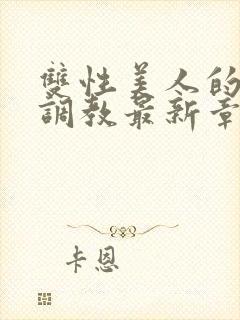 雙性美人的
調教最新章
卡恩